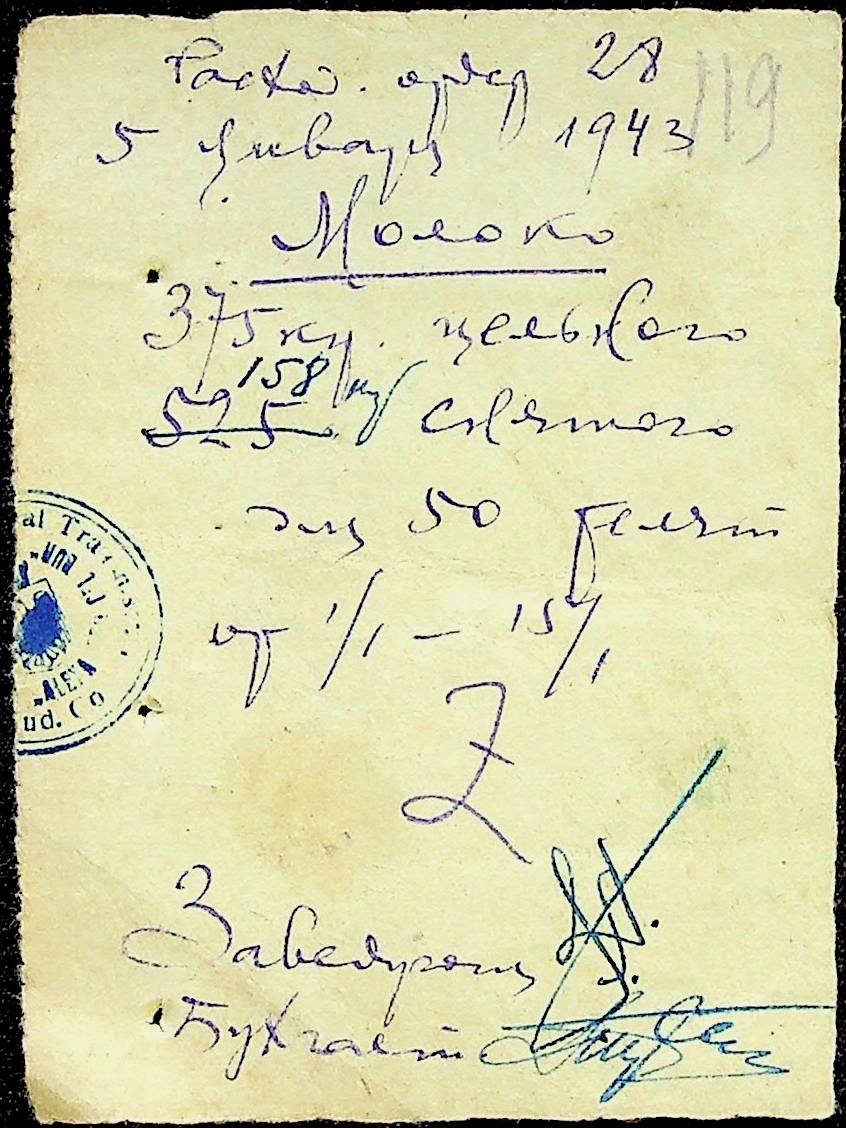 Расход. ордер 28
119
5 Января 1943
Молоко
375 кг. цельного
158 кг
525 снятого
для 50 телят
от 1/1 – 15/1
Z
al Tra
"ALEXA
ud. Co
Заведующ
Бухгалт